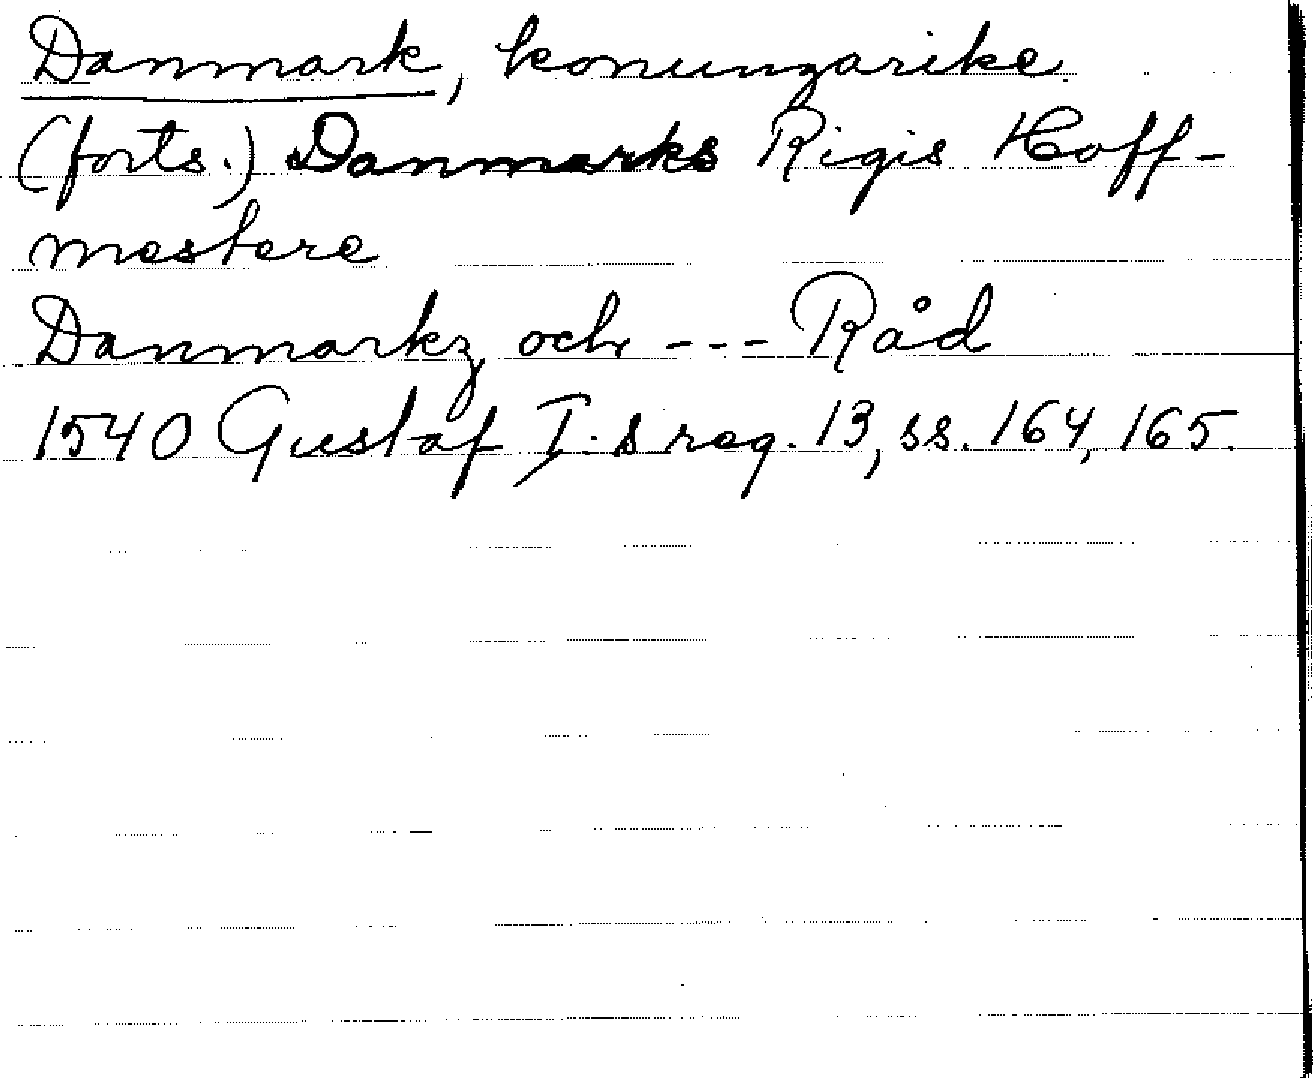 Danmark, konungarike
(forts.) Danmarks Rigis Hoff-
mestere
Danmarkz och --- Råd
1540 Gustaf I:s reg. 13, ss. 164, 165.